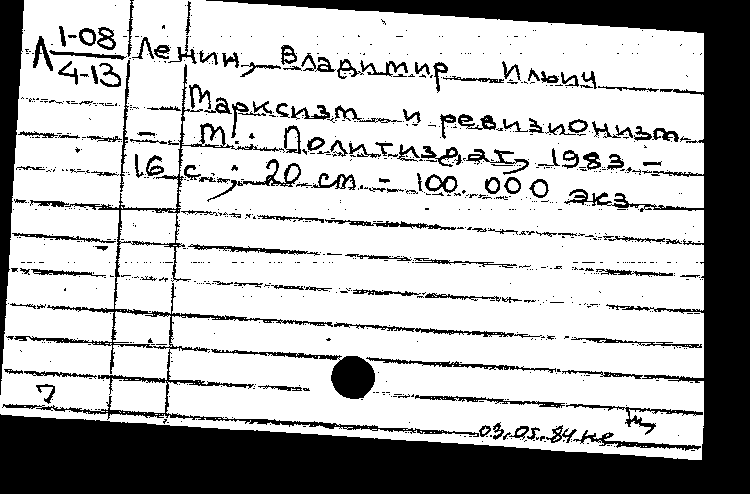 Л 1-08
4-13
Ленин, Владимир Ильич
Марксизм и ревизионизм
- М.: Политиздат, 1983. -
16 с. ; 20 см. - 100.000 экз.
7
03.05.84 не